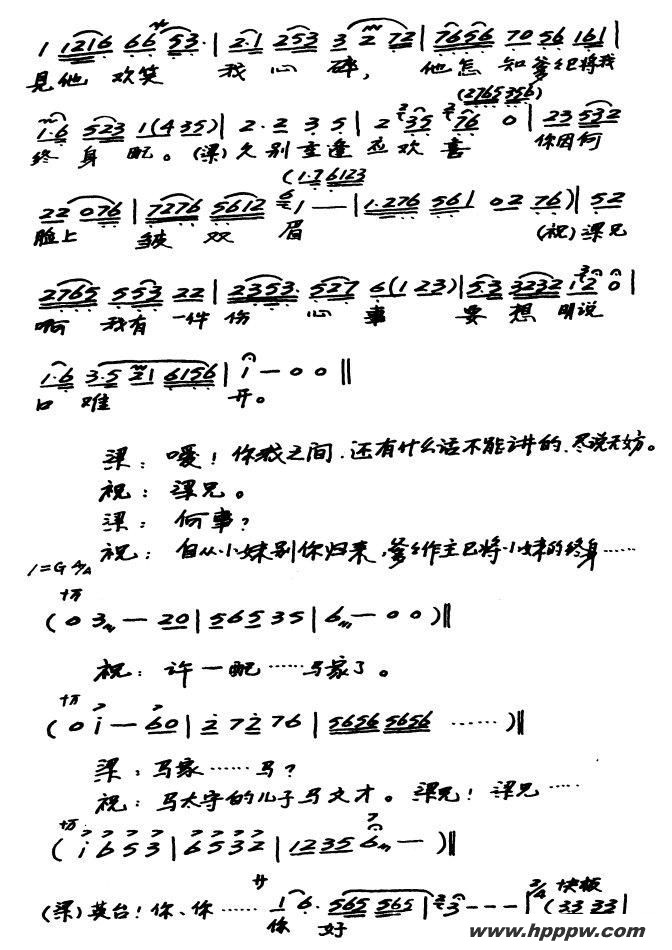 1 1216 66 53· | 2·1 253 3 2 72 | 7656 70 56 161 |
見他 欢笑 我心碎， 他怎知爹爹已将我
(2765 356)
1·6 523 1(4 35) | 2·2 3 5 | 2 35 76 0 | 23 532
终身配。(梁)久别重逢应欢喜 你因何
(1·7 6123
22 076 | 7276 5612 1 — — | 1·276 561 02 76) | 52
脸上 皱双眉 (祝)梁兄
2765 553 22 | 2353· 527 6(1 23) | 53 3232 12 0 |
啊 我有一件伤心事 要想明说
1·6 3·5 21 6156 | 1 — 0 0 ‖
口难 开。
梁：嗳！你我之间，还有什么话不能讲的，尽说无妨。
祝：梁兄。
梁：何事？
祝：自从小妹别你归来，爹爹作主已将小妹的终身……
1=G 4/4
(0 3 — 20 | 56 5 35 | 6 — 0 0)‖
祝：许一配……马家了。
(0 i — 60 | 2 7 2 76 | 5656 5656 ……)‖
梁：马家……马？
祝：马太守的儿子马文才。梁兄！梁兄……
(i 6 5 3 | 6 5 3 2 | 1235 6 — )‖
(梁)英台！你、你…… 1 6· 565 565 | 3 - - - | 3/4 快板 (33 33 |
你 好
www.hpppw.com